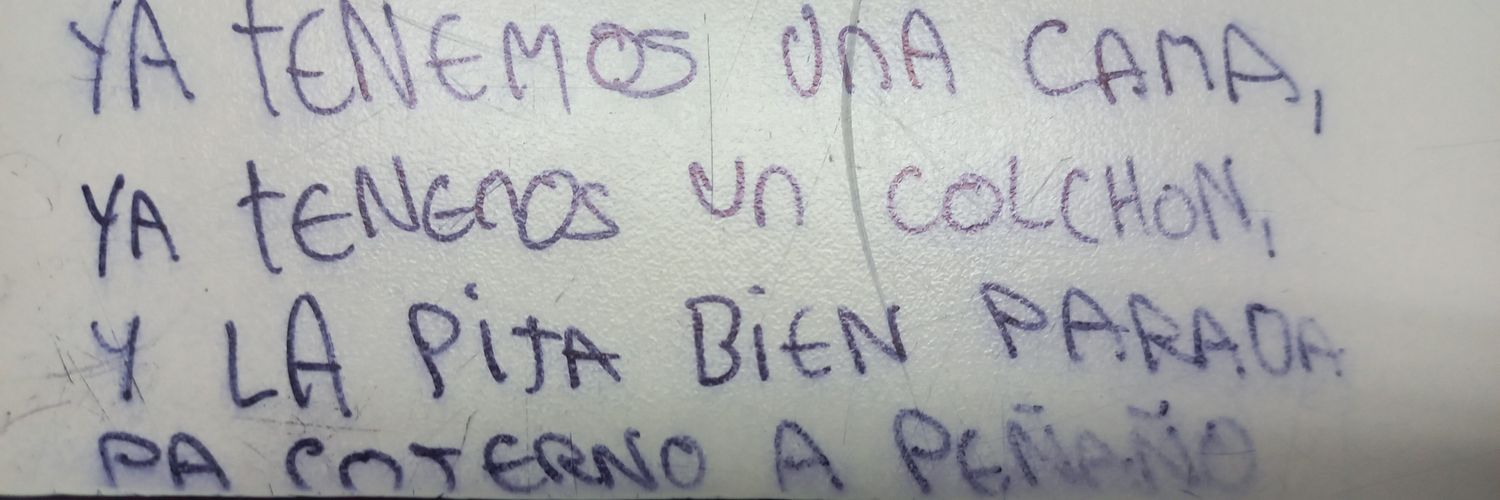 YA tENEMOS UnA CAMA,
YA tENEMOS Un COLCHON,
Y LA PiJA BiEN PARADA
PA COJERNO A PEÑAÑO